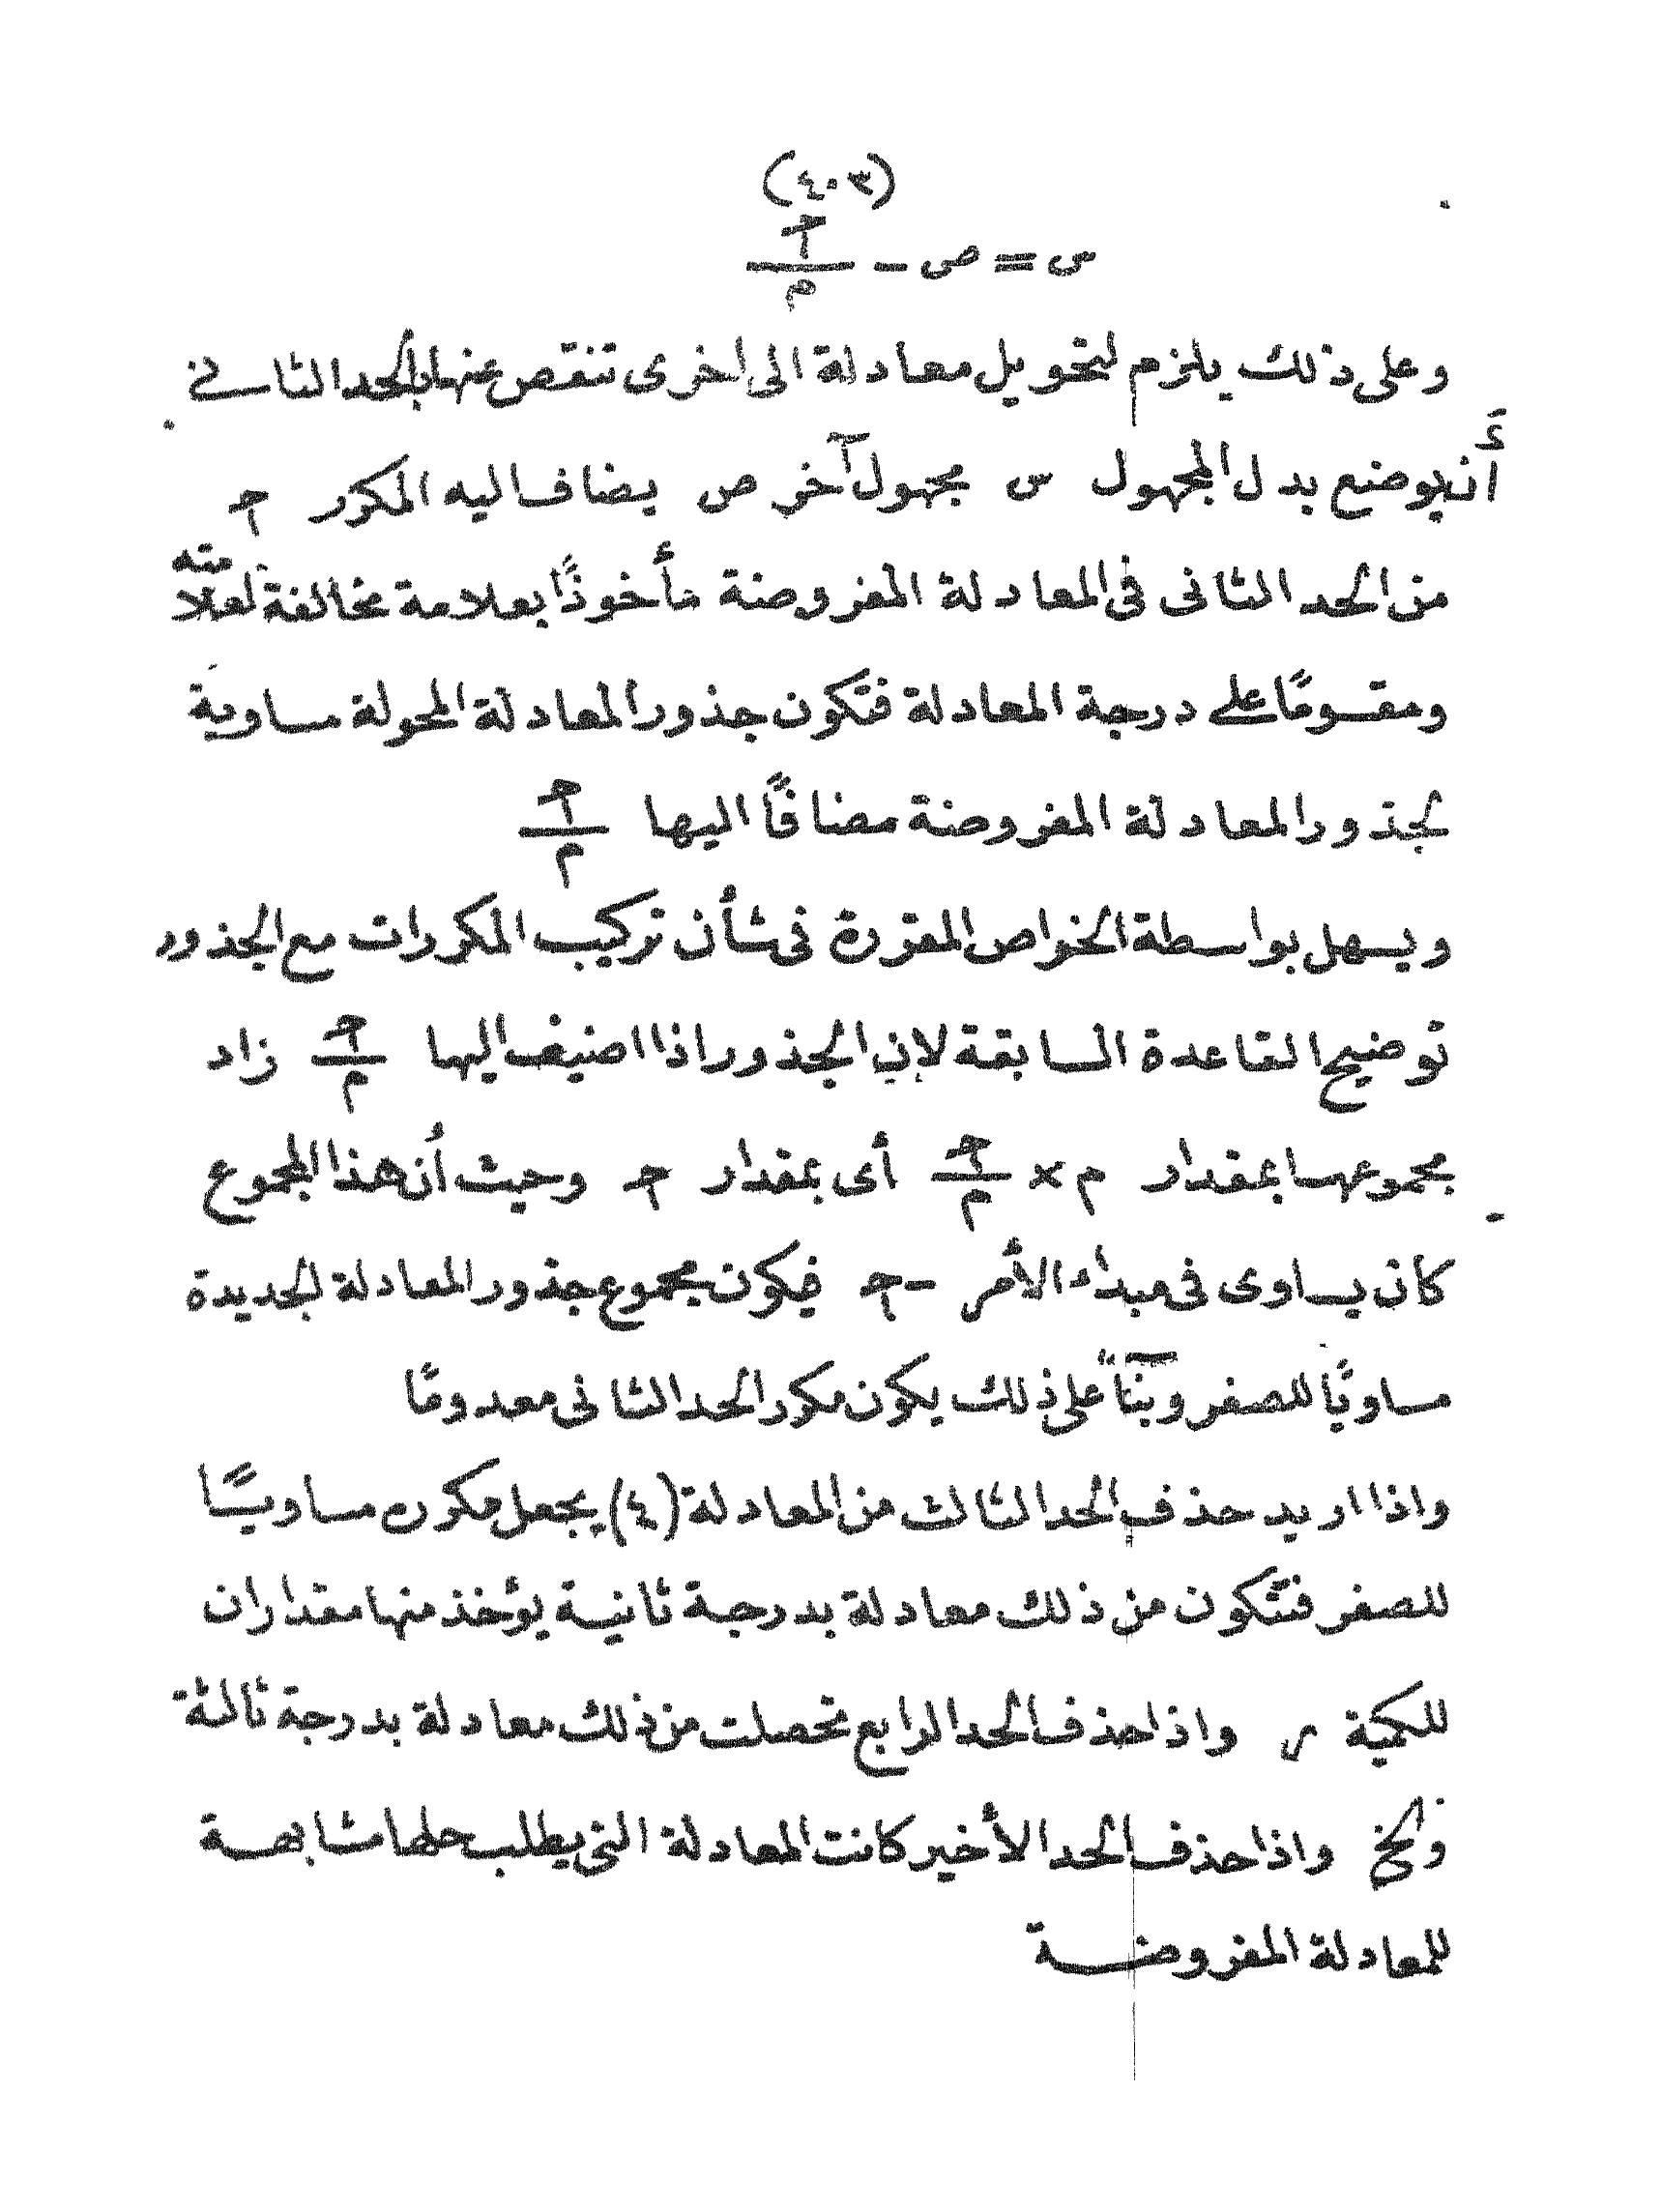 (٤٠٣)
س = ص − حـ/م
وعلى ذلك يلزم لتحويل معادلة الى اخرى تنقص عنها بالحد الثانى
أن يوضع بدل المجهول س مجهول آخر ص يضاف اليه المكرر حـ
من الحد الثانى فى المعادلة المفروضة مأخوذًا بعلامة مخالفة لعلامته
ومقسومًا على درجة المعادلة فتكون جذور المعادلة المحولة مساوية
لجذور المعادلة المفروضة مضافًا اليها حـ/م
ويسهل بواسطة الخواص المقررة فى شأن تركيب المكررات مع الجذور
توضيح القاعدة السابقة لان الجذور اذا اضيف اليها حـ/م زاد
مجموعها بمقدار م × حـ/م أى بمقدار حـ وحيث أن هذا المجموع
كان يساوى فى مبداء الأمر − حـ فيكون مجموع جذور المعادلة الجديدة
مساويًا للصفر وبنآً على ذلك يكون مكرر الحد الثانى معدومًا
واذا اريد حذف الحد الثالث من المعادلة (٤) يجعل مكرره مساويًا
للصفر فتتكون من ذلك معادلة بدرجة ثانية يؤخذ منها مقداران
للكمية ر واذا حذف الحد الرابع تحصلت من ذلك معادلة بدرجة ثالثة
والخ واذا حذف الحد الأخير كانت المعادلة التى يطلب حلها مشابهة
للمعادلة المفروضة